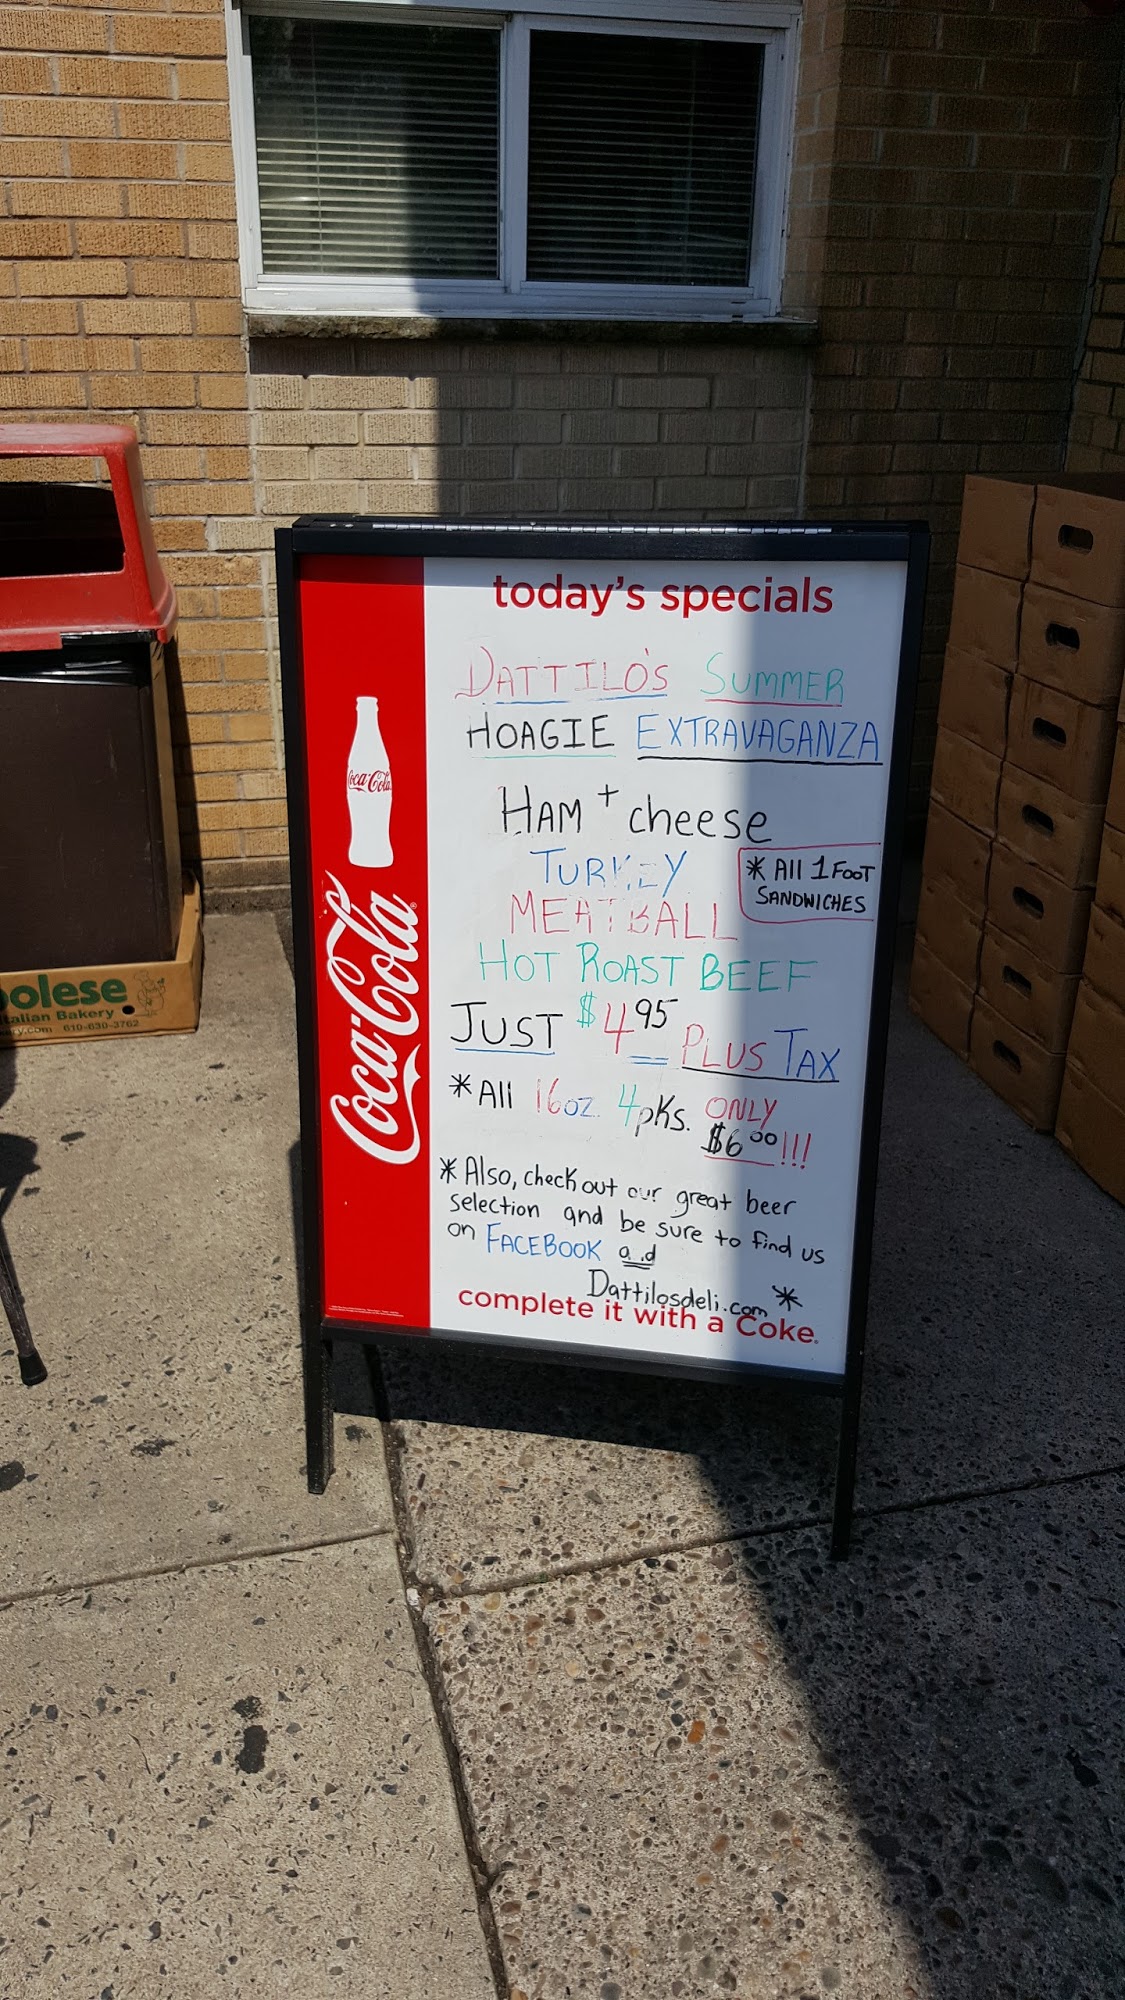 today's specials
DATTILO'S SUMMER
HOAGIE EXTRAVAGANZA
HAM + cheese
TURKEY
* All 1 FOOT
SANDWICHES
MEATBALL
HOT ROAST BEEF
JUST $4.95 PLUS TAX
*All 16oz. 4pks. ONLY
$6.00!!!
* Also, check out our great beer
selection and be sure to find us
on FACEBOOK and
Dattilosdeli.com *
complete it with a Coke.
Coca-Cola
Coca-Cola
olese
Italian Bakery
610-630-3762